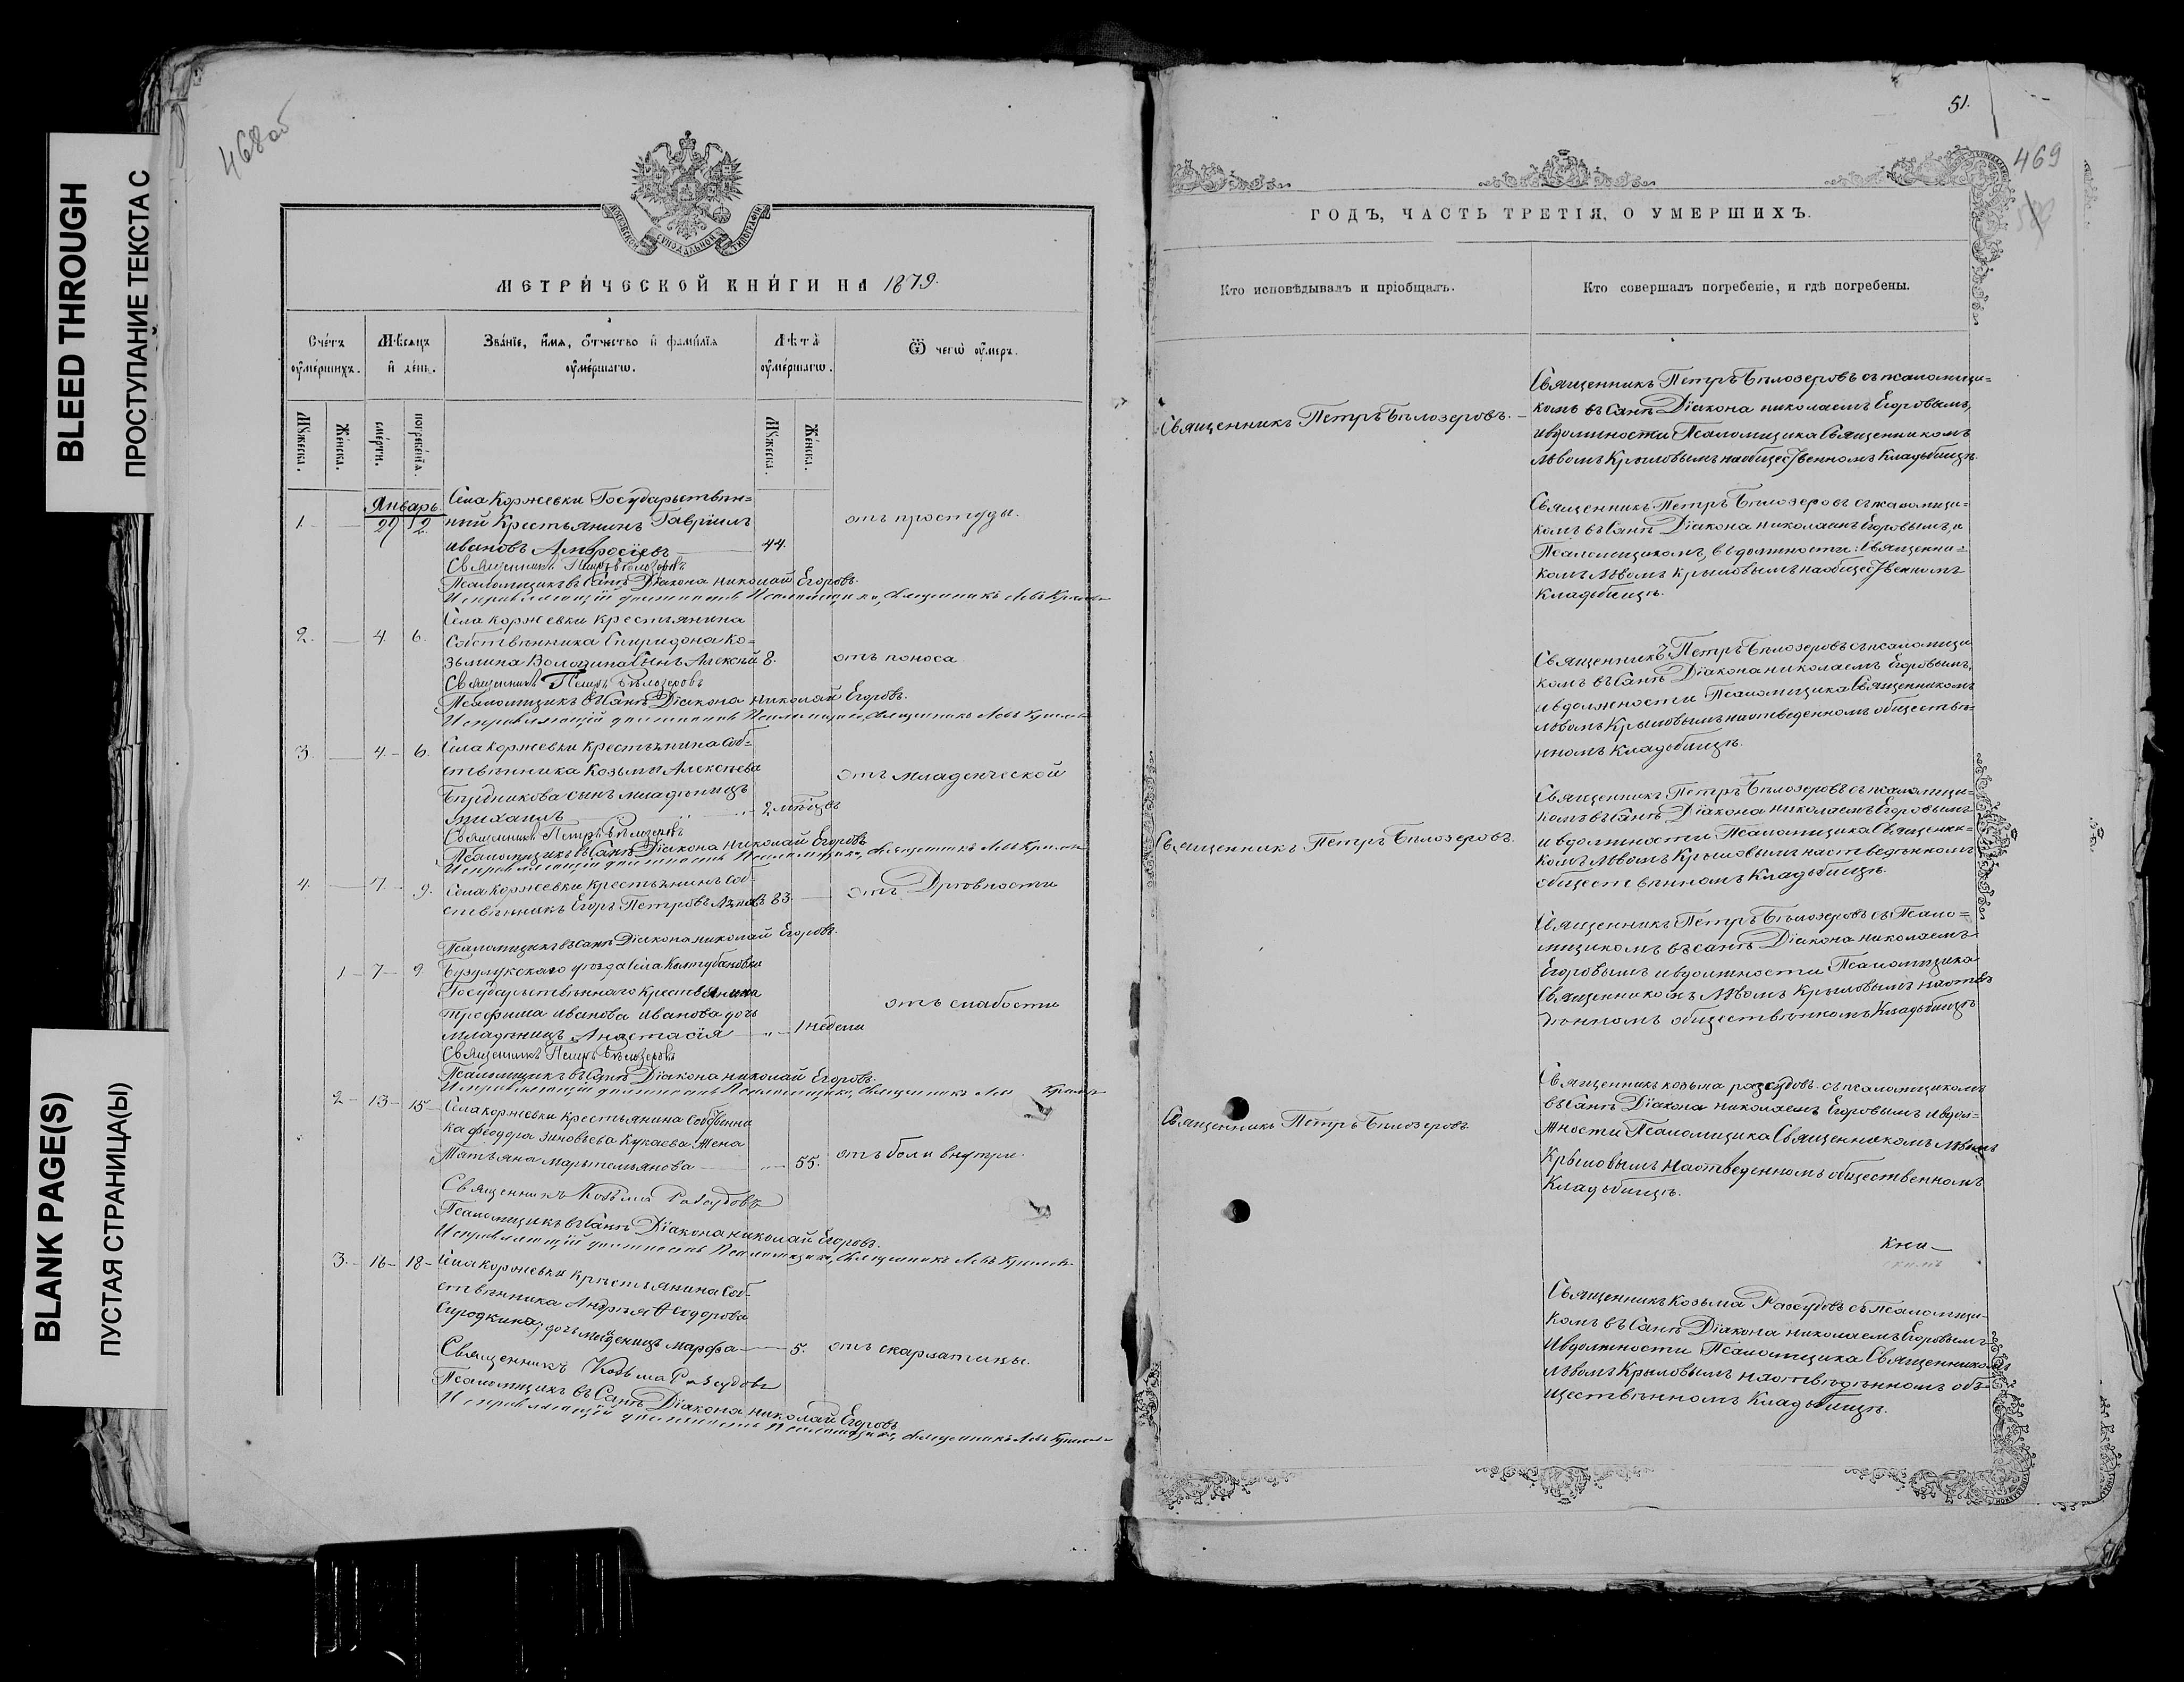 BLEED THROUGH
ПРОСТУПАНИЕ ТЕКСТА С
BLANK PAGE(S)
ПУСТАЯ СТРАНИЦА(Ы)
468 об
МОСКОВСКОЙ СѴНОДАЛЬНОЙ ТИПОГРАФІИ
МЕТРИ́ЧЕСКОЙ КНИ́ГИ НА 1879.
Сче́тъ ᲂу҆ме́ршихъ.
Мѣ́сяцъ и҆ де́нь.
Зва́нїе, и҆́мя, ѻ҆́тчество и҆ фами́лїя ᲂу҆ме́ршагѡ.
Лѣ́та ᲂу҆ме́ршагѡ.
Ѿ чегѡ̀ ᲂу҆́меръ.
Мꙋ́жеска.
Же́нска.
сме́рти.
погребе́нїѧ.
Мꙋ́жеска.
Же́нска.
Январь.
1. — 29 2
Села Коржевки Государьствен=
ный Крестьянинъ Гаврiилъ
Ивановъ Амвросiевъ — 44.
отъ простуды.
Священникъ Петръ Бѣлозеровъ
Псаломщикъ въ Санѣ Дiакона Николай Егоровъ.
Исправляющiй должность Псаломщика, Священникъ Левъ Крыловъ
2. — 4. 6.
Села Коржевки Крестьянина
Собственника Спиридона Ко=
зьмина Володина Сынъ Алексѣй 8.
отъ поноса
Священникъ Петръ Бѣлозеровъ
Псаломщикъ въ Санѣ Дiакона Николай Егоровъ.
Исправляющiй должность Псаломщика, Священникъ Левъ Крыловъ
3. — 4. — 6.
Села Коржевки Крестьянина Соб=
ственника Козьмы Алексѣева
сынъ младенецъ
Михаилъ — 2 мѣсяцевъ
отъ младенческой
Священникъ Петръ Бѣлозеровъ
Псаломщикъ въ Санѣ Дiакона Николай Егоровъ
Исправляющiй должность Псаломщика, Священникъ Левъ Крыловъ
4. — 7. — 9.
Села Коржевки Крестьянинъ Соб=
ственникъ Егоръ Петровъ 83. —
отъ Древности
Псаломщикъ въ Санѣ Дiакона Николай Егоровъ.
1 — 7 — 9
Бузулукскаго уѣзда Села Колтубановки
Государьственнаго Крестьянина
Трофима Иванова Иванова дочь
младенецъ Анастасiя — 1 недели
отъ слабости
Священникъ Петръ Бѣлозеровъ
Псаломщикъ въ Санѣ Дiакона Николай Егоровъ.
Исправляющiй должность Псаломщика, Священникъ Левъ Крыловъ
2 — 13 — 15 —
Села Коржевки Крестьянина Собственни
ка Феодора Зиновьева Кукаева Жена
Татьяна — 55.
отъ боли внутри.
Священникъ Козьма Разсудовъ
Псаломщикъ въ Санѣ Дiакона Николай Егоровъ.
Исправляющiй должность Псаломщика, Священникъ Левъ Крыловъ
3. — 16 — 18 —
Села Коржевки Крестьянина Соб=
ственника Андрея Ѳеодорова
Сиродкина, дочь младенецъ Марфа — 5.
отъ скарлатины.
Священникъ Козьма Разсудовъ
Псаломщикъ въ Санѣ Дiакона Николай Егоровъ
Исправляющiй должность Псаломщика, Священникъ Левъ Крыловъ
51.
469
ГОДЪ, ЧАСТЬ ТРЕТІЯ, О УМЕРШИХЪ.
Кто исповѣдывалъ и пріобщалъ.
Кто совершалъ погребеніе, и гдѣ погребены.
Священникъ Петръ Бѣлозеровъ. —
Священникъ Петръ Бѣлозеровъ съ псаломщи=
комъ въ Санѣ Дiакона Николаемъ Егоровымъ,
и вдолжности Псаломщика Священникомъ
Львомъ Крыловымъ на общественномъ Кладьбищѣ.
Священникъ Петръ Бѣлозеровъ съ псаломщи=
комъ въ Санѣ Дiакона Николаемъ Егоровымъ, и
Псаломщикомъ, въ должности: Священни=
комъ Львомъ Крыловымъ на общественномъ
Кладьбищѣ.
Священникъ Петръ Бѣлозеровъ съ псаломщи
комъ въ Санѣ Дiакона Николаемъ Егоровымъ,
и вдолжности Псаломщика Священникомъ
Львомъ Крыловымъ на отведенномъ обществе=
нномъ Кладьбищѣ.
Священникъ Петръ Бѣлозеровъ.
Священникъ Петръ Бѣлозеровъ съ псаломщи=
комъ въ Санѣ Дiакона Николаемъ Егоровымъ
и вдолжности Псаломщика Священни=
комъ Львомъ Крыловымъ на отведенномъ
общественномъ Кладьбищѣ.
Священникъ Петръ Бѣлозеровъ съ Псало=
мщикомъ въ санѣ Дiакона Николаемъ
Егоровымъ и вдолжности Псаломщика
Священникомъ Львомъ Крыловымъ на отве
денномъ общественномъ Кладьбищѣ
Священникъ Петръ Бѣлозеровъ
Священникъ Козьма Разсудовъ съ псаломщикомъ
въ Санѣ Дiакона Николаемъ Егоровымъ и вдол=
жности Псаломщика Священникомъ Львомъ
Крыловымъ на отведенномъ общественномъ
Кладьбищѣ.
Кни —
Священникъ Козьма Разсудовъ съ псаломщи=
комъ въ Санѣ Дiакона Николаемъ Егоровымъ
и вдолжности Псаломщика Священникомъ
Львомъ Крыловымъ на отведенномъ об=
щественномъ Кладьбищѣ.